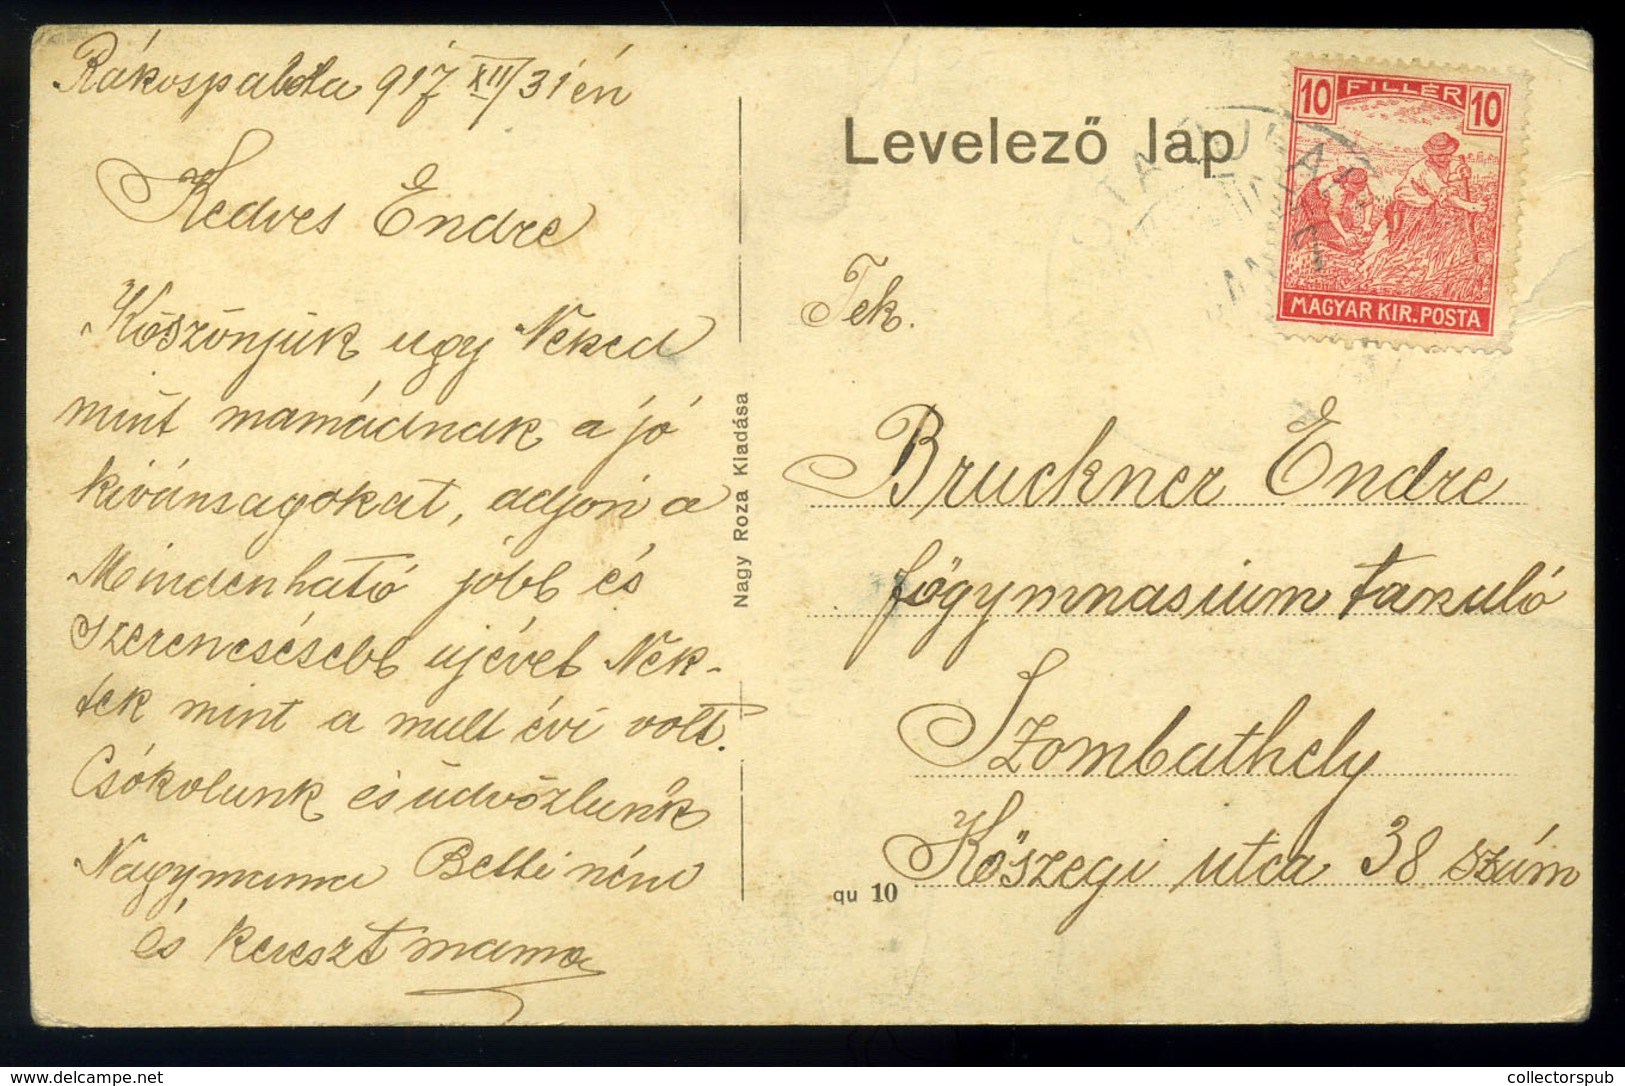 Rákospalota 917 XII/31 én
Kedves Endre
Köszönjük ugy Neked
mint mamádnak a jó
kivánságokat, adjon a
Mindenható jobb és
szerencsésebb ujévet Nék-
tek mint a mult évi volt.
Csókolunk és üdvözlünk
Nagymama Betti néni
és kereszt mama
Nagy Roza Kiadása
Levelező lap
10 FILLÉR 10
MAGYAR KIR. POSTA
Tek.
Bruckner Endre
főgymnasium tanuló
Szombathely
Kőszegi utca 38 szám
qu 10
collectorspub